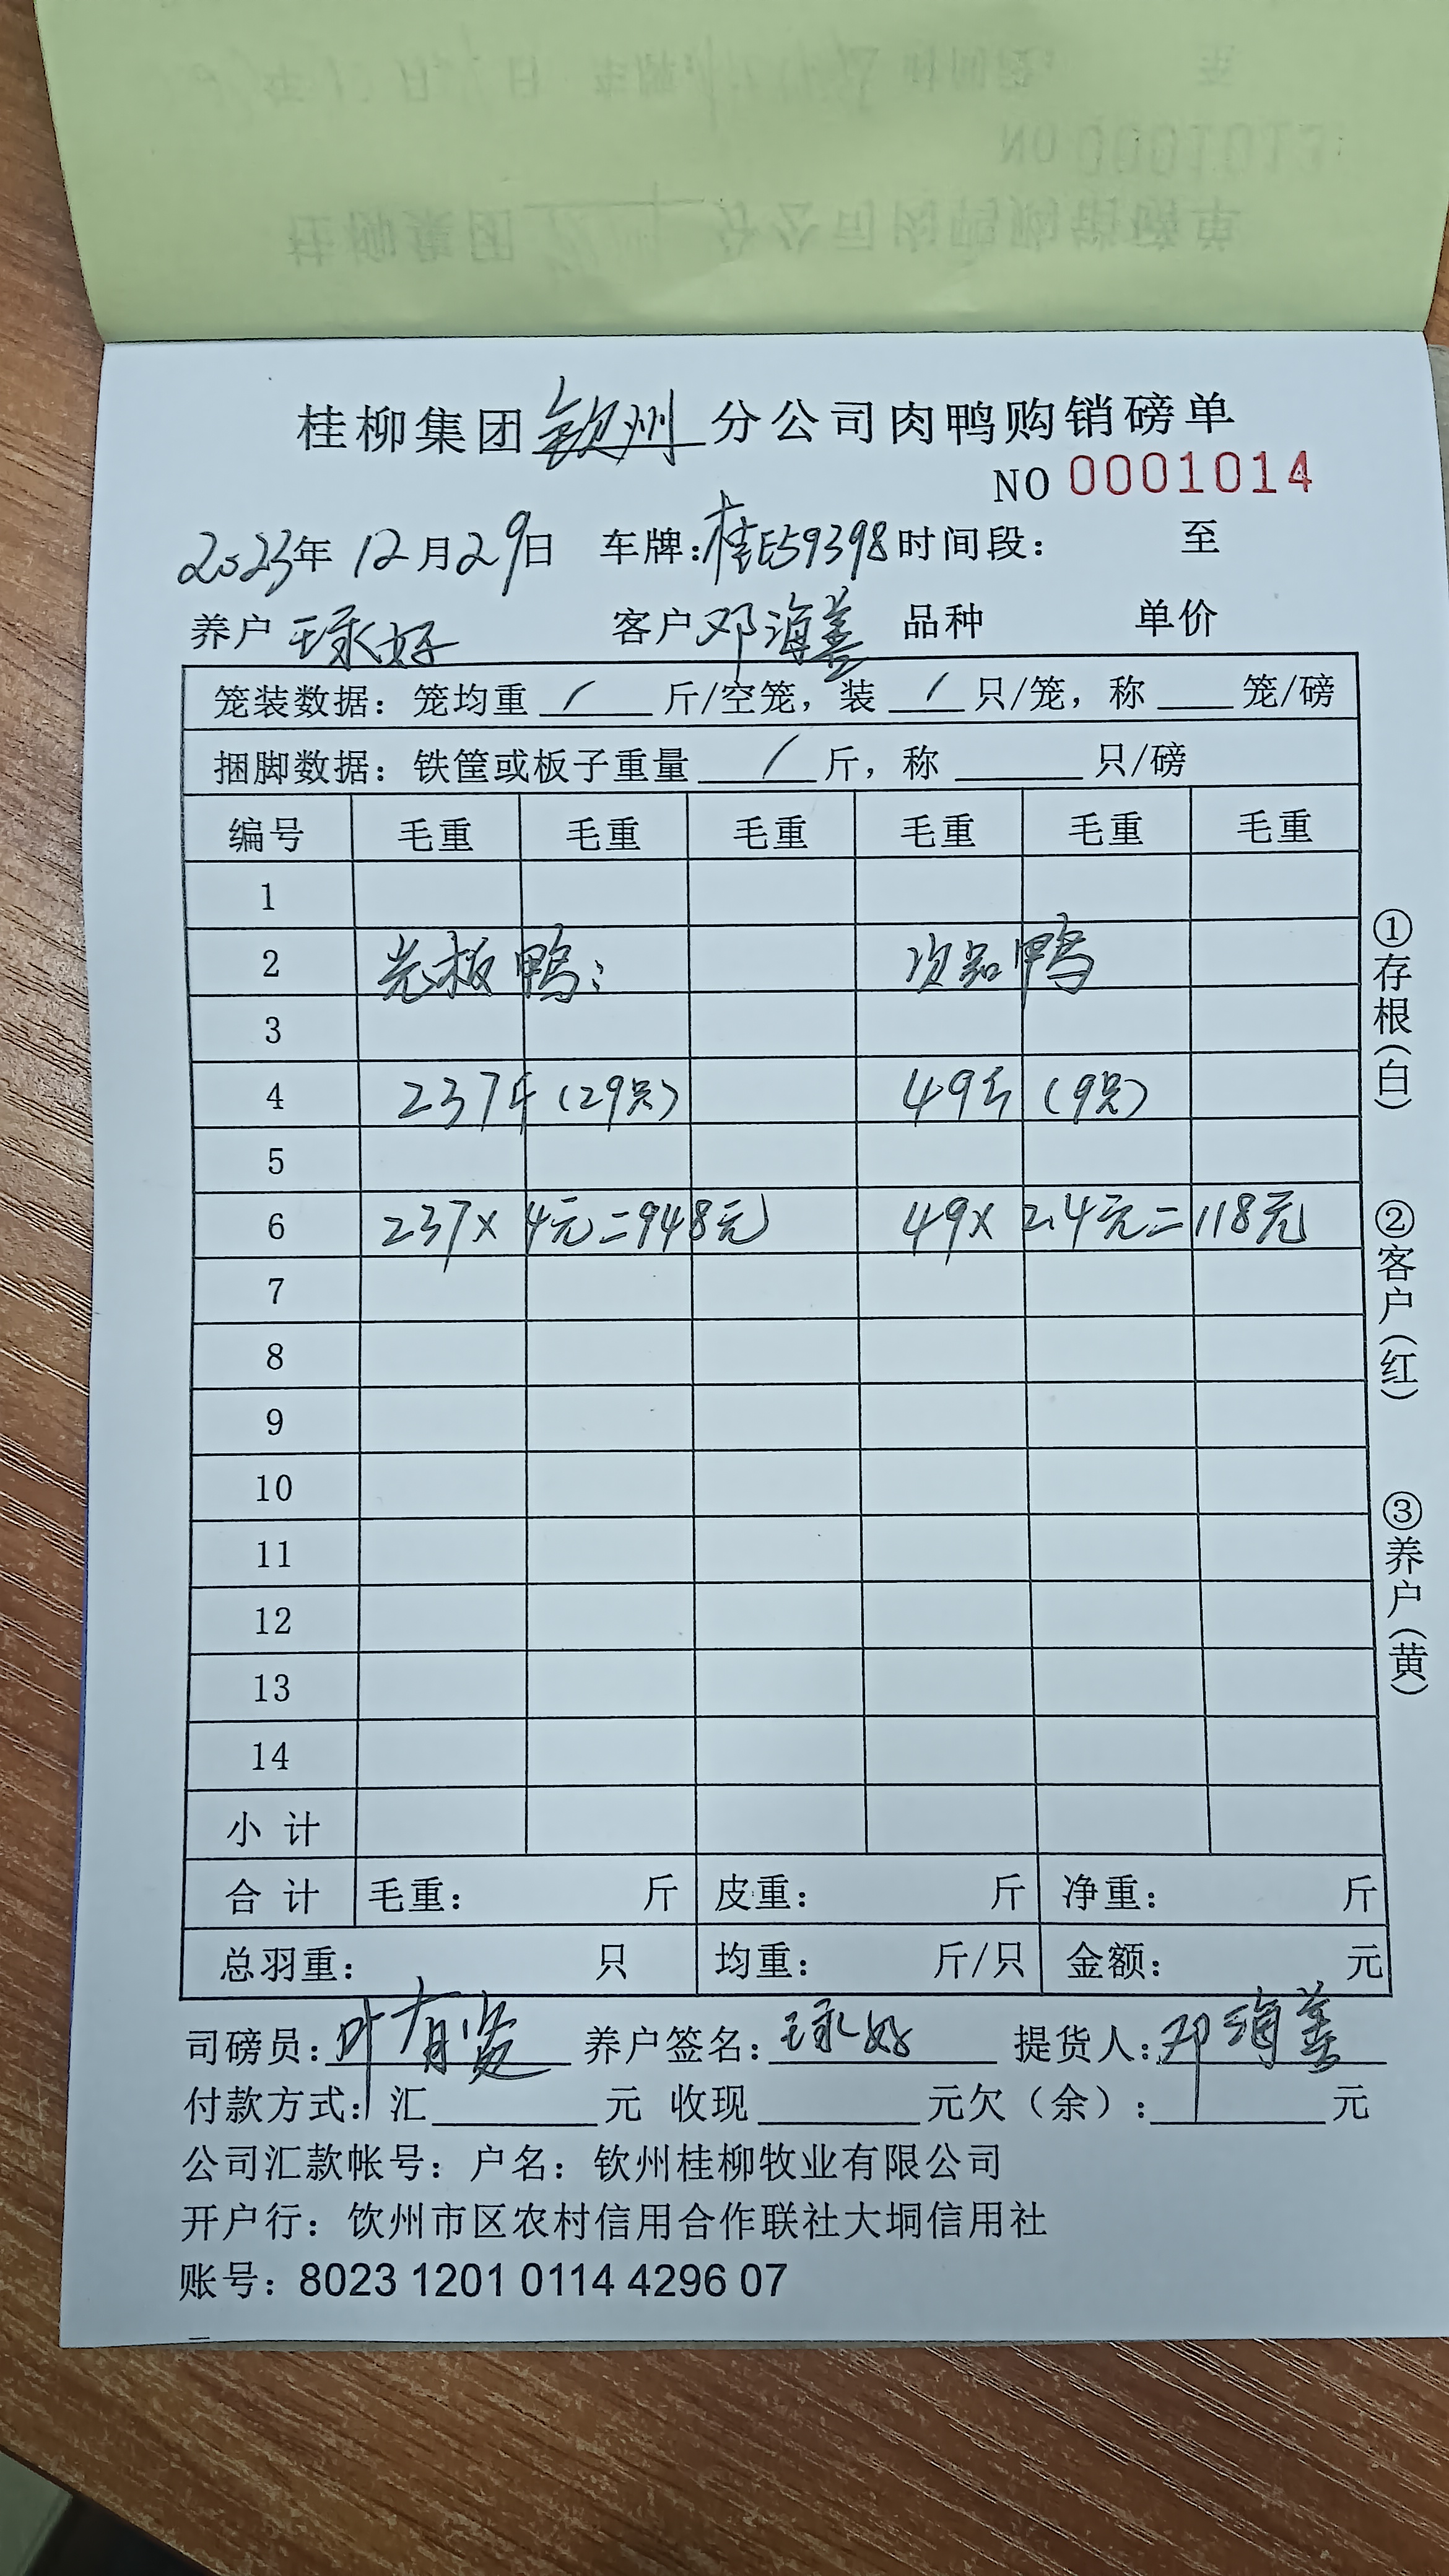 桂柳集团钦州分公司肉鸭购销磅单
NO 0001014
2023年12月29日 车牌:桂E59398时间段: 至
养户 客户邓海善 品种 单价
笼装数据:笼均重 / 斤/空笼,装 / 只/笼,称 笼/磅
捆脚数据:铁筐或板子重量 / 斤,称 只/磅
编号 毛重 毛重 毛重 毛重 毛重 毛重
1
2 光板鸭: 次品鸭
3
4 237斤(29只) 49斤(9只)
5
6 237×4元=948元 49×2.4元=118元
7
8
9
10
11
12
13
14
小计
合计 毛重: 斤 皮重: 斤 净重: 斤
总羽重: 只 均重: 斤/只 金额: 元
司磅员:叶有 养户签名: 提货人:邓海善
付款方式:汇 元 收现 元欠(余): 元
公司汇款帐号:户名:钦州桂柳牧业有限公司
开户行:饮州市区农村信用合作联社大垌信用社
账号:8023 1201 0114 4296 07
①存根(白)
②客户(红)
③养户(黄)